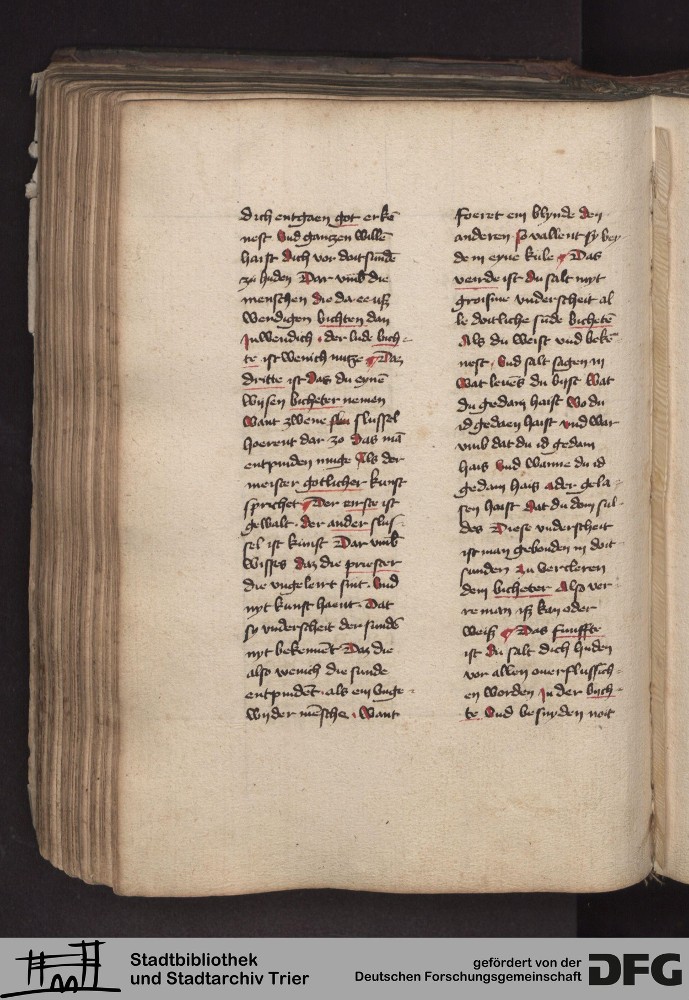 dich entgaen got erkē
nest Vnd gantzen willē
haist dich vor doitsunde
zu huden Dar vmb die
menschen die da ee usz
wendigen bichten dan
Inwendich . der lude bich=
te ist wenich nutze Daz
dritte ist das du eynē
wysen bichteter nemen
Want zwene slussel
hoerent dar zo das mā
entpinden muge Als der
meister gotlicher kunst
sprichet Der erste ist
gewalt . der ander slus=
sel ist kunst Dar vmb
wisses daz die priester
die vngeleirt sint . Vnd
nyt kunst haent . Dat
sy vnderscheit der sundē
nyt bekennēt Daz die
also wenich die sunde
entpindēt . als ein vnge=
wyder mēsche . Want
foeret ein blynde den
anderen so vallent sy bey
de in eyne kule Das
veirde ist du salt myt
groisme vnderscheit al
le doitliche sūde bichetē
Als du weist vnd bekē=
nest . Vnd salt sagen in
wat levens du byst wat
du gedain haist wo du
id gedaen haist vnd war
vmb dat du id gedain
hais Vnd wanne du id
gedain hais oder gela=
sen haist dat du doin sul=
des Diese vnderscheit
ist man gebonden in doit
sunden zu vercleren
dem bicheter Also ver
re man isz kan oder
weisz Das funffte
ist du salt dich huden
vor allen ouerflussich=
en worden In der bijch=
te Vnd besnyden noit
Stadtbibliothek
und Stadtarchiv Trier
gefördert von der
Deutschen Forschungsgemeinschaft
DFG